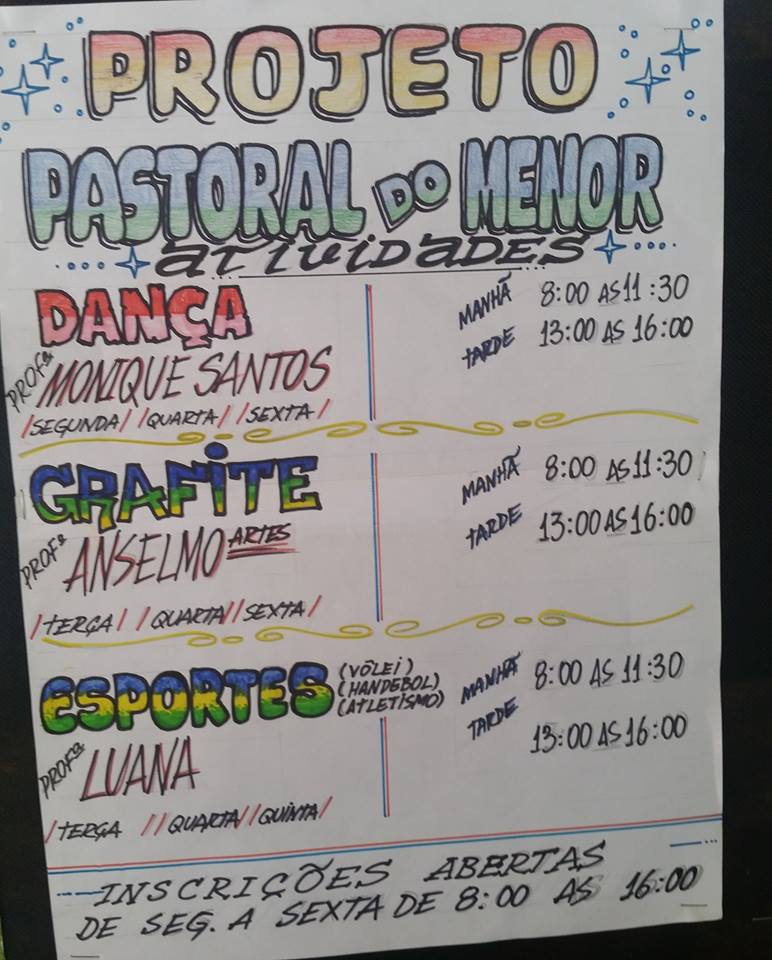 PROJETO
PASTORAL DO MENOR
atividades
DANÇA
PROFª MONIQUE SANTOS
/SEGUNDA/ /QUARTA/ /SEXTA/
MANHÃ 8:00 AS 11:30
TARDE 13:00 AS 16:00
GRAFITE
PROFº ANSELMO ARTES
/TERÇA/ /QUARTA//SEXTA/
MANHÃ 8:00 AS 11:30
TARDE 13:00 AS 16:00
ESPORTES (VÔLEI)
(HANDEBOL)
(ATLETISMO)
PROFª LUANA
/TERÇA //QUARTA//QUINTA/
MANHÃ 8:00 AS 11:30
TARDE 13:00 AS 16:00
INSCRIÇÕES ABERTAS
DE SEG. A SEXTA DE 8:00 AS 16:00